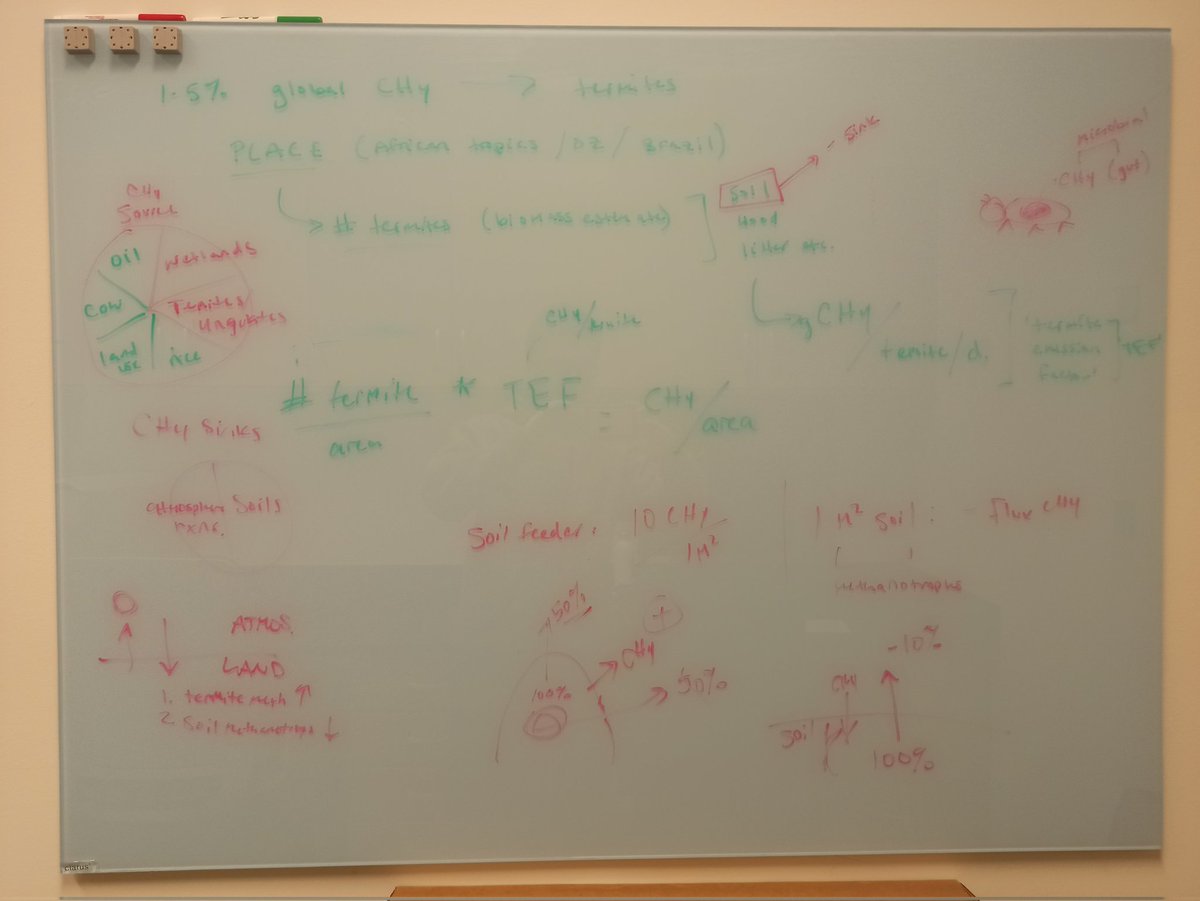 1.5% global CH4 → termites
PLACE (African tropics / OZ / Brazil)
→ # termites (biomass estimate)
Soil
wood
litter etc.
→ - Sink
microbial
CH4 (gut)
CH4
Source
Oil
wetlands
Cow
Termites
Ungulates
land use
rice
CH4/termite
→ g CH4/termite/d.
'termite
emission
factor'
TEF
# termite * TEF = CH4/area
area
CH4 Sinks
Soils
Soil feeder: 10 CH4/1M²
1 M² Soil: - flux CH4
methanotrophs
ATMOS.
LAND
1. termite meth ↑
2. Soil methanotrophs ↓
50%
+
CH4
100%
50%
-10%
CH4
Soil
100%
clarus